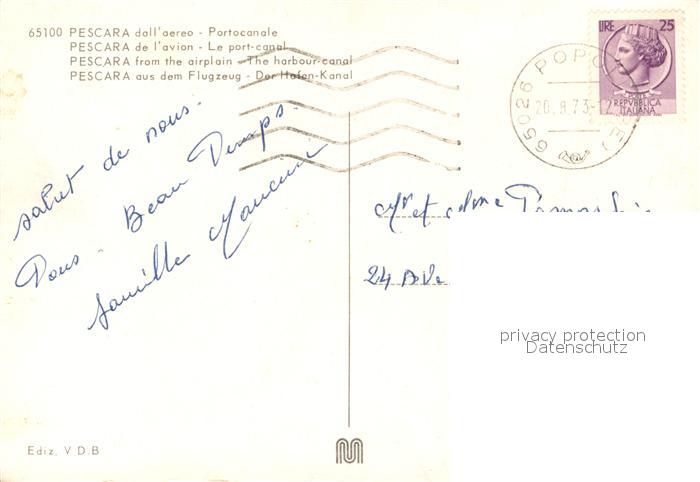 65100 PESCARA dall'aereo - Portocanale
PESCARA de l'avion - Le port-canal
PESCARA from the airplain - The harbour-canal
PESCARA aus dem Flugzeug - Der Hafen-Kanal
LIRE 25
POSTE
REPVBBLICA
ITALIANA
65026 POPOLI (PE)
20.8.73-12
salut de nous.
Tous. Beau Temps.
famille
Mr et Mme
24 Ave
privacy protection
Datenschutz
Ediz. V.D.B